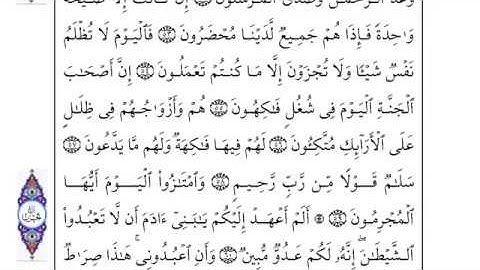 وَعَدَ ٱلرَّحۡمَٰنُ وَصَدَقَ ٱلۡمُرۡسَلُونَ ۝٥٢ إِن كَانَتۡ إِلَّا صَيۡحَةٗ
وَٰحِدَةٗ فَإِذَا هُمۡ جَمِيعٞ لَّدَيۡنَا مُحۡضَرُونَ ۝٥٣ فَٱلۡيَوۡمَ لَا تُظۡلَمُ
نَفۡسٞ شَيۡـٔٗا وَلَا تُجۡزَوۡنَ إِلَّا مَا كُنتُمۡ تَعۡمَلُونَ ۝٥٤ إِنَّ أَصۡحَٰبَ
ٱلۡجَنَّةِ ٱلۡيَوۡمَ فِي شُغُلٖ فَٰكِهُونَ ۝٥٥ هُمۡ وَأَزۡوَٰجُهُمۡ فِي ظِلَٰلٍ
عَلَى ٱلۡأَرَآئِكِ مُتَّكِـُٔونَ ۝٥٦ لَهُمۡ فِيهَا فَٰكِهَةٞ وَلَهُم مَّا يَدَّعُونَ ۝٥٧
سَلَٰمٞ قَوۡلٗا مِّن رَّبّٖ رَّحِيمٖ ۝٥٨ وَٱمۡتَٰزُواْ ٱلۡيَوۡمَ أَيُّهَا
ٱلۡمُجۡرِمُونَ ۝٥٩ ۞ أَلَمۡ أَعۡهَدۡ إِلَيۡكُمۡ يَٰبَنِيٓ ءَادَمَ أَن لَّا تَعۡبُدُواْ
ٱلشَّيۡطَٰنَۖ إِنَّهُۥ لَكُمۡ عَدُوّٞ مُّبِينٞ ۝٦٠ وَأَنِ ٱعۡبُدُونِيۚ هَٰذَا صِرَٰطٞ